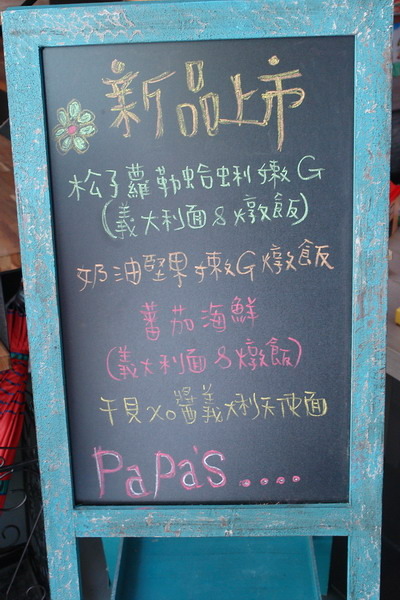 新品上市
松子蘿勒蛤蜊嫩G
(義大利面&燉飯)
奶油堅果嫩G燉飯
蕃茄海鮮
(義大利面&燉飯)
干貝xo醬義大利天使面
PaPa's....